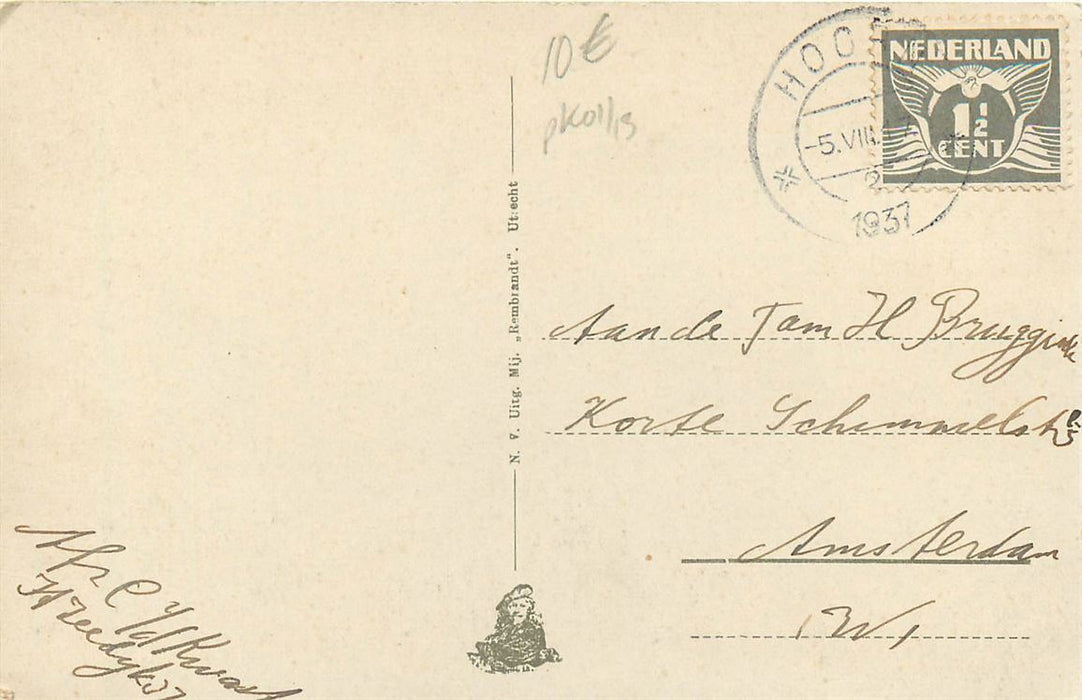 10 €
pkoll/s
HOO
-5.VIII.
2
1937
NEDERLAND
1 1/2
CENT
N. V. Uitg. Mij. „Rembrandt". Utrecht
Aan de Fam H Bruggink
Korte Schimmelstr
Amsterdam
W
Afz C